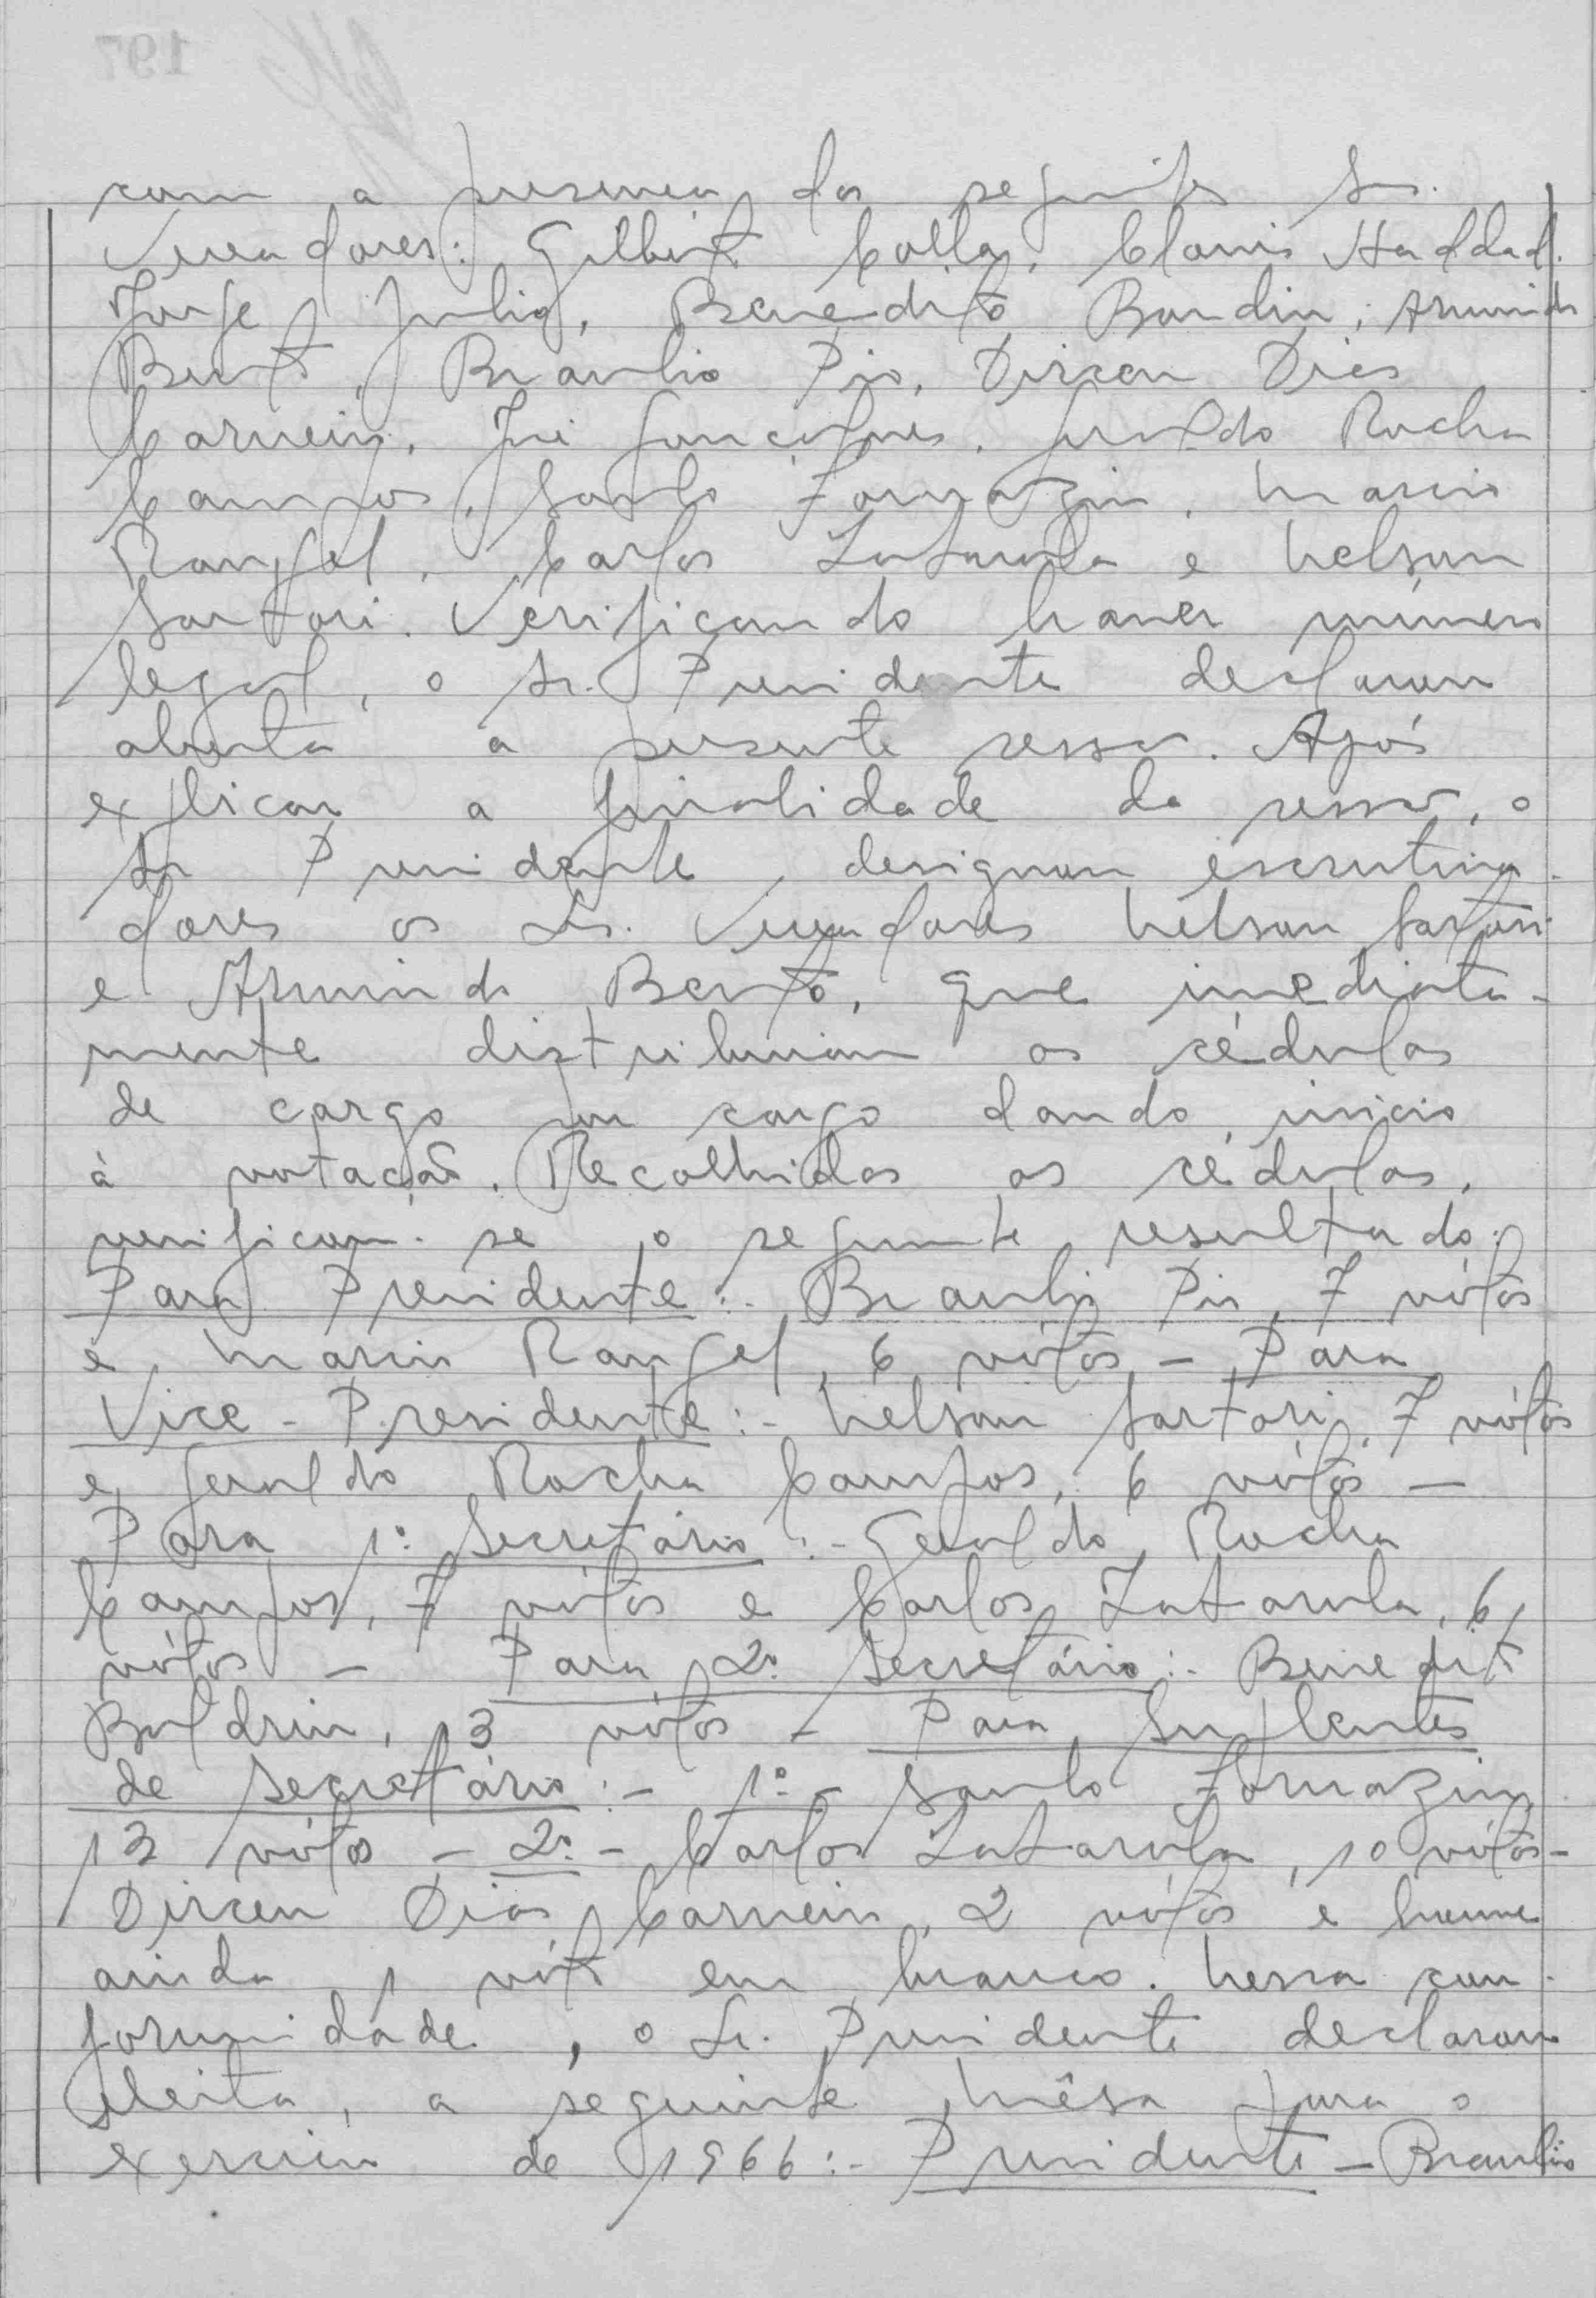 com a presença dos seguintes Srs.
Vereadores: Gilberto Colla, Clovis Haddad,
Jorge Julio, Benedito Bordin, Arumindo
Bento, Braulio Pio, Dirceu Dias
Carneiro, José Gonçalves, Geraldo Rocha
Campos, Santo Fornazin, Marcio
Rangel, Carlos Zatarola e Nelson
Sartori. Verificando haver número
legal, o Sr. Presidente declarou
aberta a presente sessão. Após
explicar a finalidade da sessão, o
Sr Presidente, designou escrutina-
dores os Srs. Vereadores Nelson Sartori
e Arumindo Bento, que imediata-
mente distribuiram as cédulas
de cargo por cargo dando inicio
à votação. Recolhidas as cédulas,
verificou-se o seguinte resultado:
Para Presidente:- Braulio Pio, 7 vótos
e Marcio Rangel, 6 vótos - Para
Vice-Presidente:- Nelson Sartori, 7 vótos
e Geraldo Rocha Campos, 6 vótos -
Para 1º Secretário:- Geraldo Rocha
Campos, 7 vótos e Carlos Zatarola, 6
vótos - Para 2º Secretário:- Benedito
Boldrin, 13 vótos - Para Suplentes
de secretário:- 1º- Santo Fornazin,
13 vótos - 2º- Carlos Zatarola, 10 vótos -
Dirceu Dias Carneiro, 2 vótos e houve
ainda 1 vóto em branco. Nessa con-
formidade, o Sr. Presidente declarou
eleita, a seguinte Mêsa para o
exercicio de 1966:- Presidente - Braulio